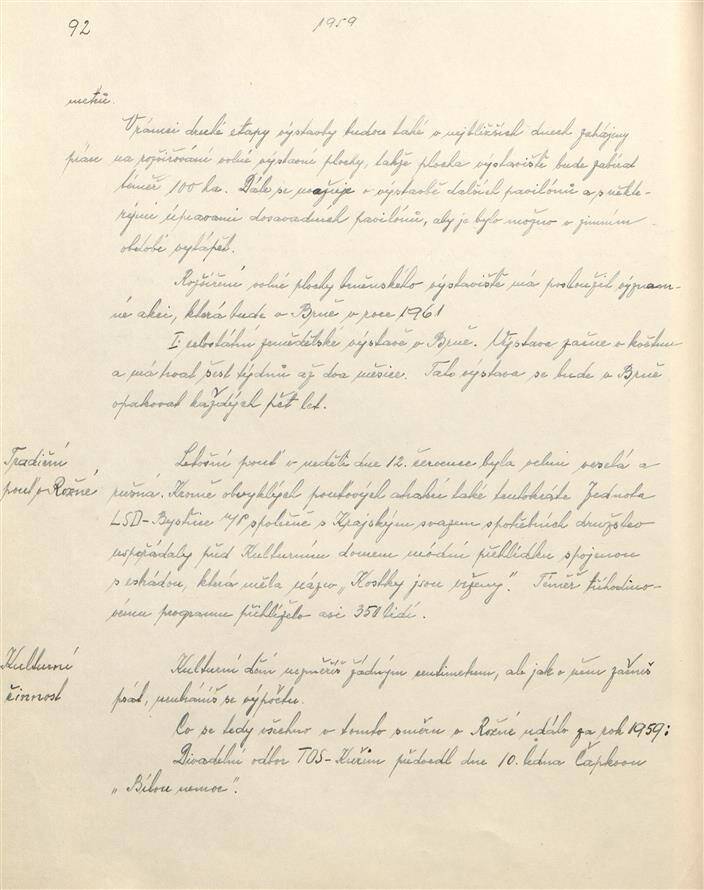 92
1959
metrů.
V rámci druhé etapy výstavby budou také v nejbližších dnech zahájeny
práce na rozšiřování volné výstavní plochy, takže plocha výstaviště bude zabírat
téměř 100 ha. Dále se uvažuje o výstavbě dalších pavilónů a s někte-
rými úpravami dosavadních pavilónů, aby je bylo možno v zimním
období vytápět.
Rozšíření volné plochy brněnského výstaviště má posloužit význam-
né akci, která bude v Brně v roce 1961
I. celostátní zemědělské výstavě v Brně. Výstava začne v květnu
a má trvat šest týdnů až dva měsíce. Tato výstava se bude v Brně
opakovat každých pět let.
Tradiční
pouť v Rožné
Letošní pouť v neděli dne 12. července byla velmi veselá a
rušná. Kromě obvyklých pouťových atrakcí také tentokráte Jednota
LSD-Bystřice n/P společně s Krajským svazem spotřebních družstev
uspořádaly před Kulturním domem módní přehlídku spojenou
s estrádou, která měla název „Kostky jsou vrženy". Téměř tříhodino-
vému programu přihlíželo asi 350 lidí.
Kulturní
činnost
Kulturní dění nezměříš žádným centimetrem, ale jak o něm začneš
psát, neubráníš se výpočtu.
Co se tedy všechno v tomto směru v Rožné událo za rok 1959:
Divadelní odbor TOS-Kuřim předvedl dne 10. ledna Čapkovu
„Bílou nemoc".